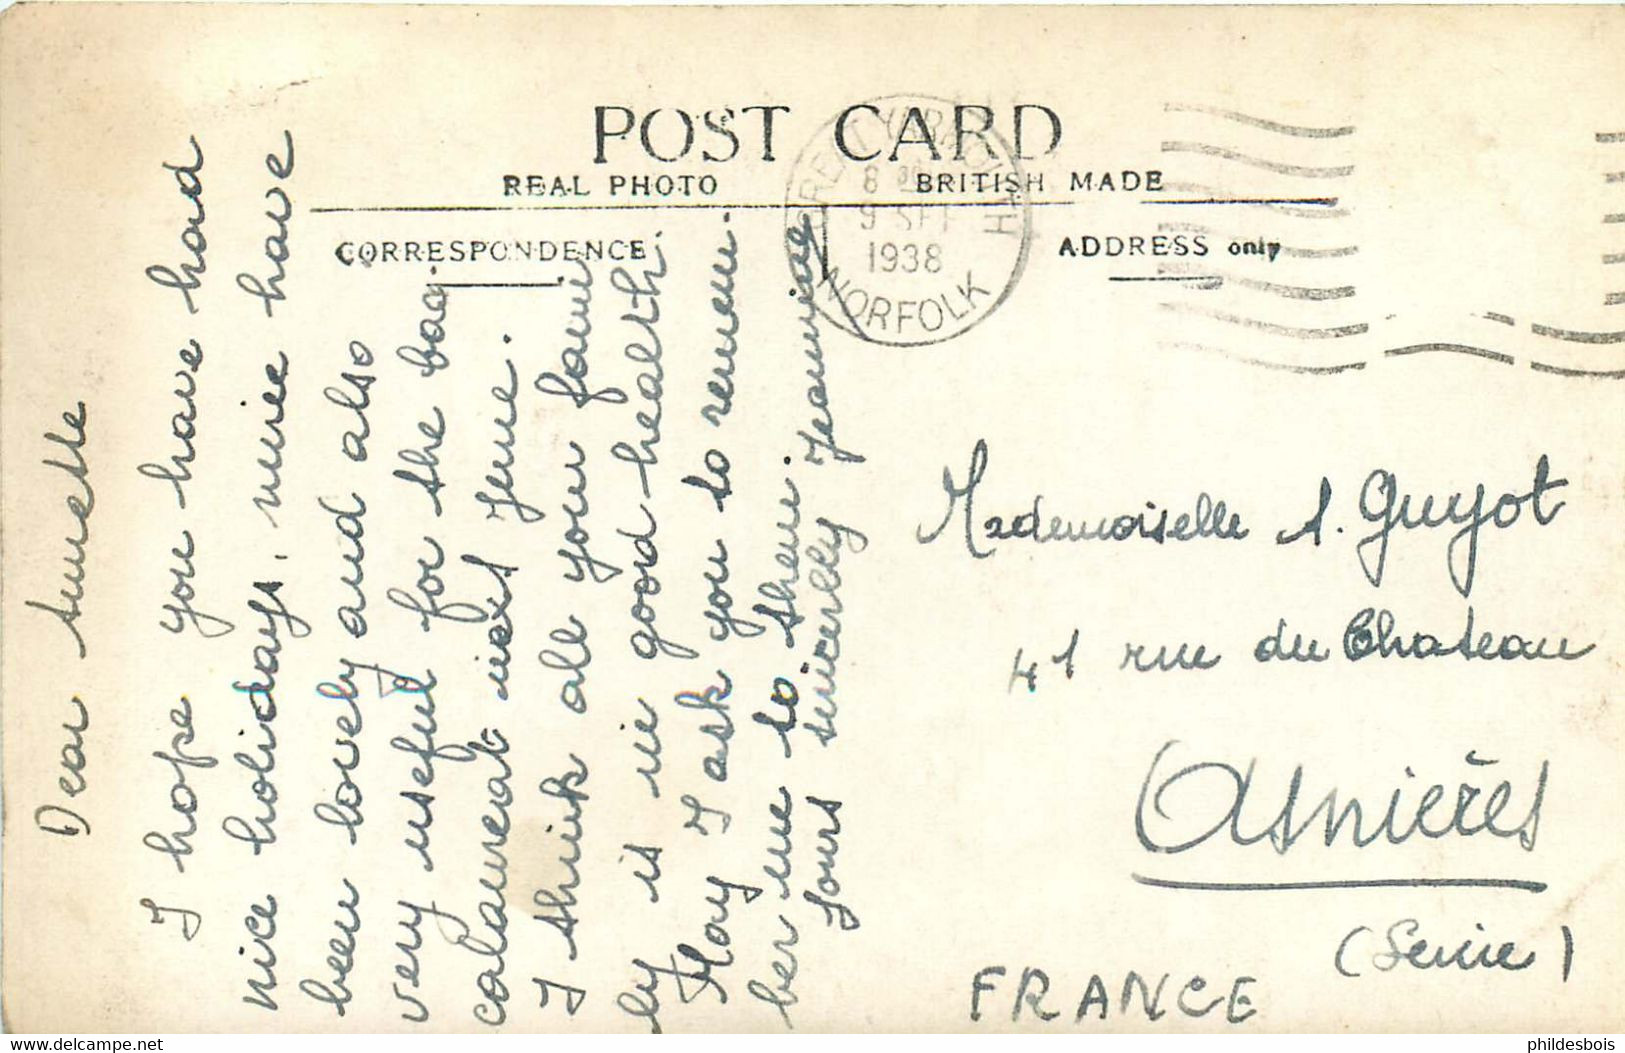 POST CARD
REAL PHOTO BRITISH MADE
CORRESPONDENCE
ADDRESS only
GREAT YARMOUTH
8
9 SEP
1938
NORFOLK
Dear Annette
I hope you have had
nice holidays. mine have
been lovely and also
very useful for the bac-
calaureat next June.
I think all your fami-
ly is in good health.
May I ask you to remem-
ber me to them.
Yours sincerelly Jeannine
Mademoiselle A. Guyot
41 rue du Chateau
Asnières
(Seine)
FRANCE
delcampe.net
phildesbois